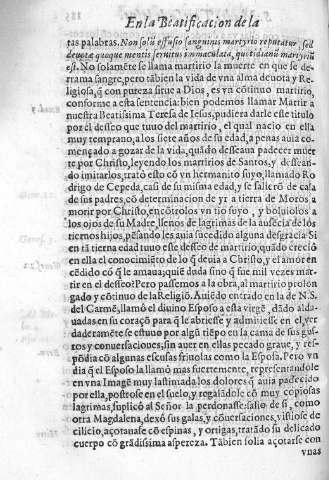 En la Beatificacion de la
tas palabras. Non solũ effusio sanguinis martyrio reputatur, sed
deuotæ quoque mentis seruitus immaculata, quotidianũ martyriũ
est. No solamẽte se llama martirio la muerte en que se de-
rrama sangre, pero tãbien la vida de vna alma deuota y Re-
ligiosa, q̃ con pureza situe a Dios, es vn cõtinuo martirio,
conforme a esta sentencia: bien podemos llamar Martir a
nuestra Beatissima Teresa de Iesus, pudiera darle este titulo
por el desseo que tuuo del martirio, el qual nacio en ella
muy temprano, a los siete años de su edad, a penas auia co-
mençado a gozar de la vida, quãdo desseaua padecer muer
te por Christo, leyendo los martirios de Santos, y dessean-
do imitarlos, trató esto cõ vn hermanito suyo, llamado Ro
drigo de Cepeda, casi de su misma edad, y se salierõ de ca-
sa de sus padres, cõ determinacion de yr a tierra de Moros a
morir por Christo, encõtrolos vn tio suyo, y boluiolos a
los ojos de su Madre, llenos de lagrimas de la ausẽcia de los
tiernos hijos, pensãdo les auia sucedido alguna desgracia: Si
en tã tierna edad tuuo este desseo de martirio, quãdo creció
en ella el conocimiẽto de lo q̃ deuia a Christo, y el amor en
cẽdido có q̃ le amaua; quiẽ duda sino q̃ fue mil vezes mar-
tir en el desseo? Pero passemos a la obra, al martirio prolon
gado y cõtinuo de la Religiõ. Auiẽdo entrado en la de N. S.
del Carmẽ, llamó el diuino Esposo a esta virgẽ, dãdo alda-
uadas en su coraçõ para q̃ le abriesse y admitiesse en el, ver
daderamẽte se estuuo por algũ tiẽpo en la cama de sus gus-
tos y conuersaciones, sin auer en ellas pecado graue, y res-
põdia cõ algunas escusas friuolas como la Esposa. Pero vn
dia q̃ el Esposo la llamó mas fuertemente, representãndole
en vna Imagẽ muy lastimada, los dolores q̃ auia padecido
por ella, postrose en el suelo, y regalãdole cõ muy copiosas
lagrimas, suplicó al Señor la perdonasse: salio de si, como
otra Magdalena, dexó sus galas, y cõuersaciones, vistiose de
cilicio, açotauase cõ espinas, y ortigas, tratãdo su delicado
cuerpo cõ grãdissima aspereza. Tãbien solia açotarse con
vnas